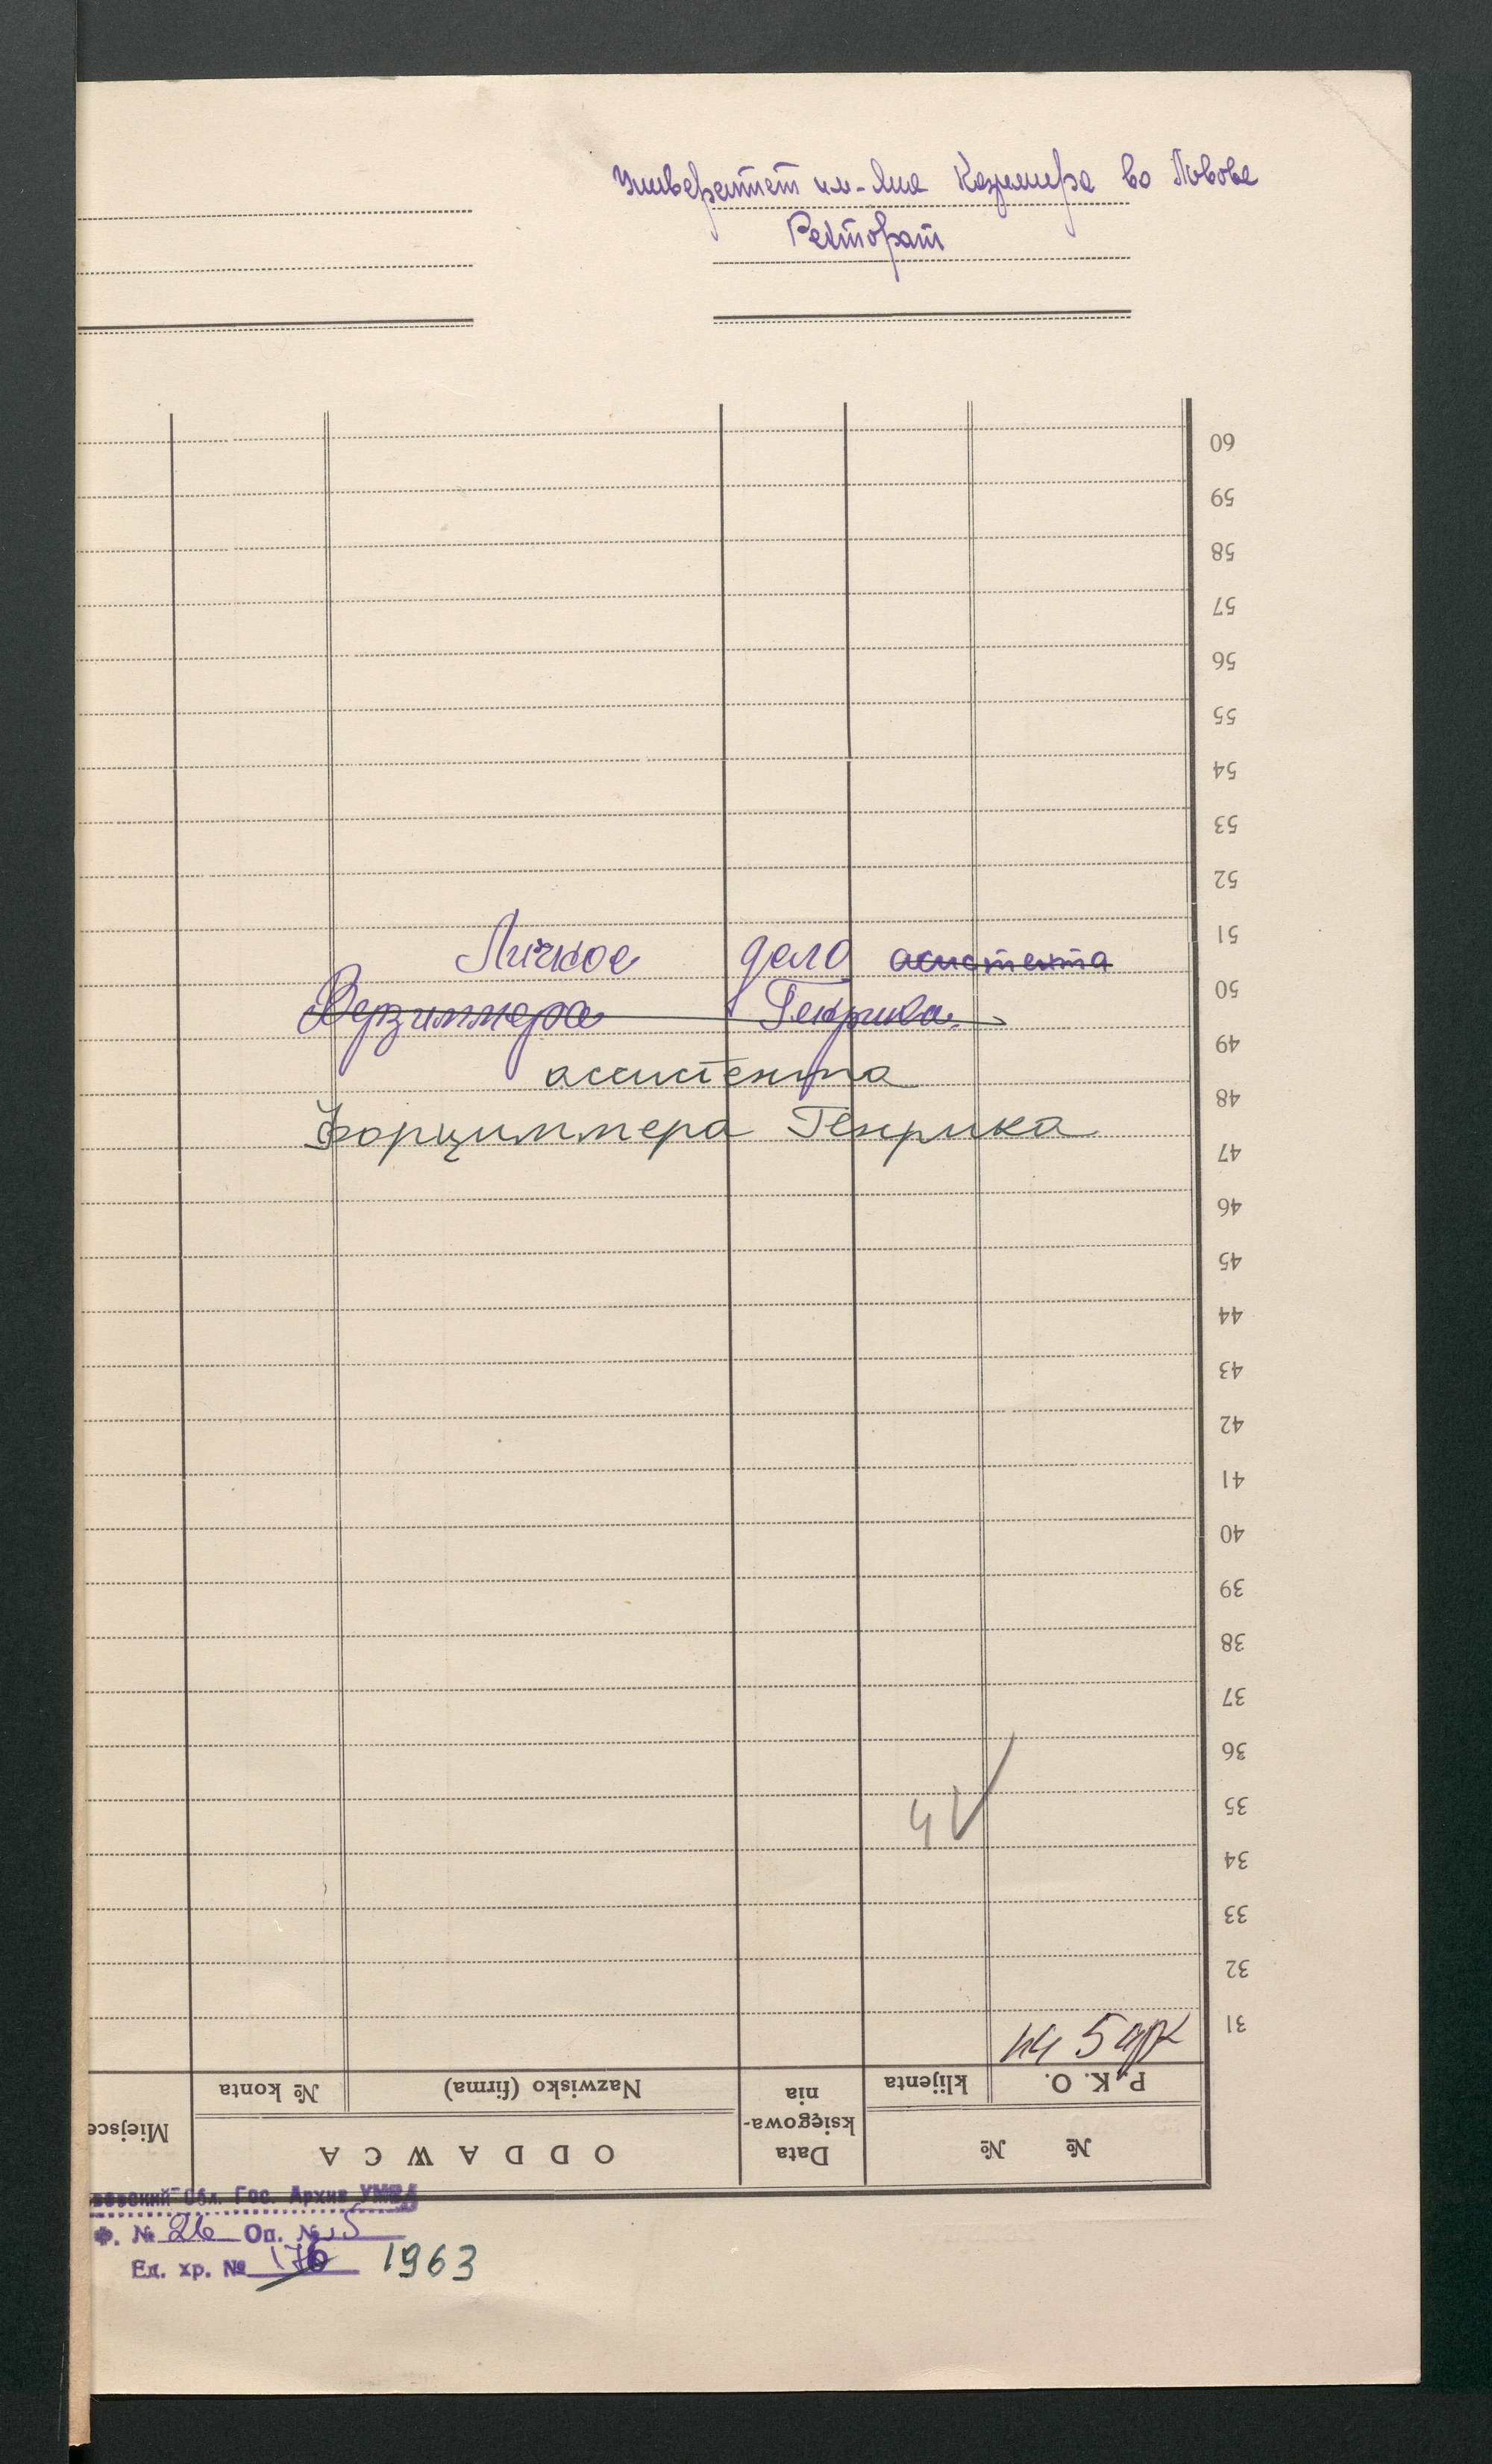 Университет им. Яна Казимира во Львове
Ректорат
60
59
58
57
56
55
54
53
52
51
Личное дело асистента
50
Ферзиммера Генрика
49
ассистента
48
Форциммера Генрика
47
46
45
44
43
42
41
40
39
38
37
36
35
34
33
32
31
P. K. O. klijenta Nazwisko (firma) № konta
№ № Data księgowa-nia ODDAWCA Miejsce
Обл. Гос. Архив УМВД
Ф. № 26 Оп. № 5
Ед. хр. № 176 1963